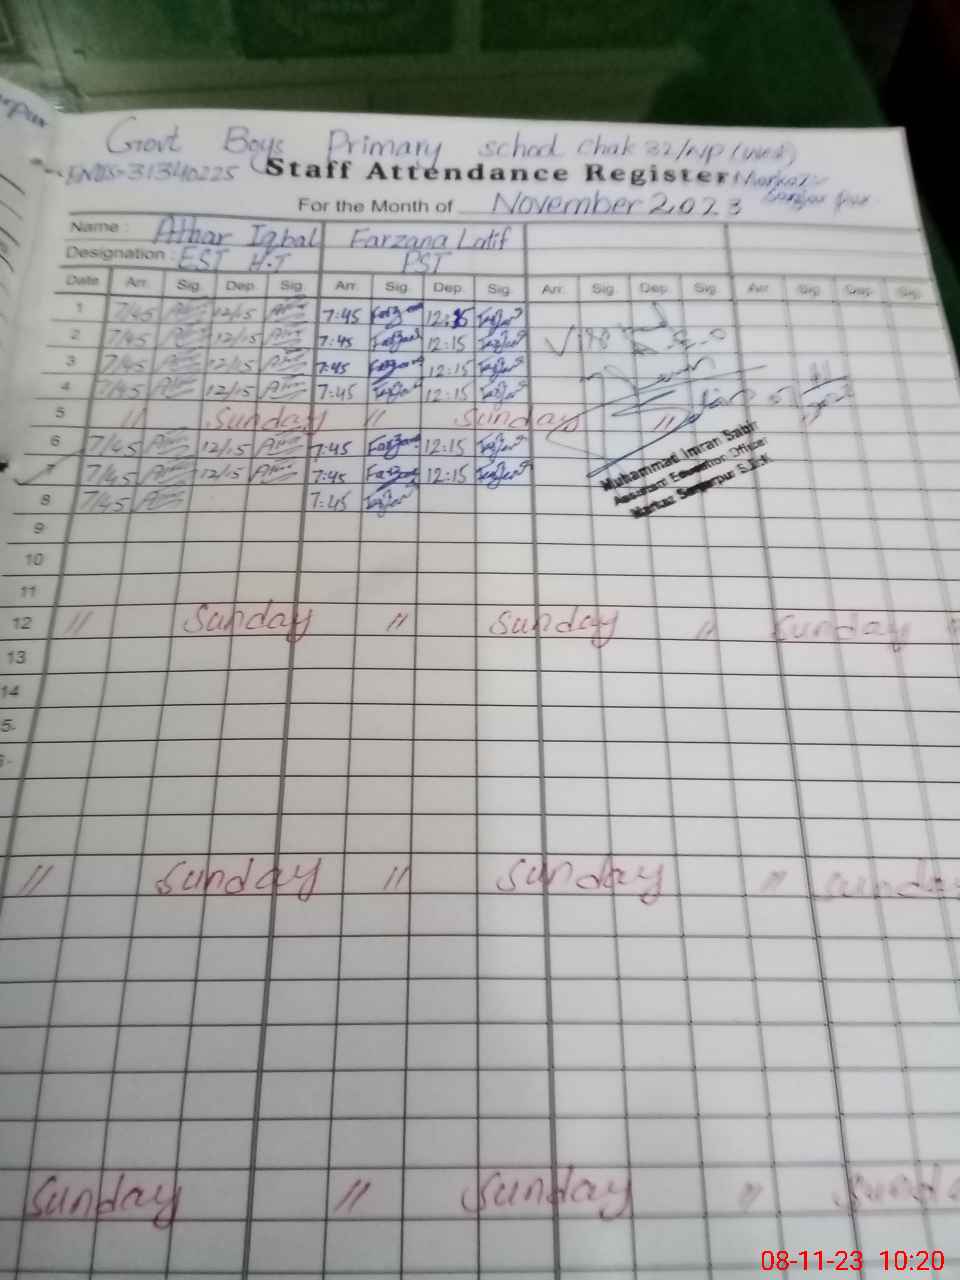 Govt Boys Primary school Chak 32/NP (West)
EMIS=31340225 Staff Attendance Register Markaz:-
For the Month of November 2023 Sanjar pur
Name : Athar Iqbal Farzana Latif
Designation : EST H.T PST
Date Arr. Sig. Dep. Sig. Arr. Sig. Dep. Sig. Arr. Sig. Dep. Sig. Arr. Sig. Dep. Sig.
1 7/45 12/15 7:45 12:15
2 7/45 12/15 7:45 12:15
3 7/45 12/15 7:45 12:15
4 7/45 12/15 7:45 12:15
5 " sunday " sunday "
6 7/45 12/15 7:45 12:15
7 7/45 12/15 7:45 12:15
Muhammad Imran Sabir
Assistant Education Officer
Markaz Sanjarpur S.D.K
8 7/45 7:45
9
10
11
12 " sunday " sunday " sunday "
13
14
5-
" sunday " sunday " sunday
sunday " sunday " sunda
08-11-23 10:20